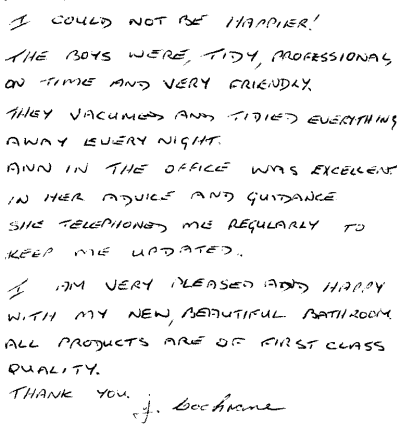 I COULD NOT BE HAPPIER!
THE BOYS WERE, TIDY, PROFESSIONAL,
ON TIME AND VERY FRIENDLY.
THEY VACUMED AND TIDIED EVERYTHING
AWAY EVERY NIGHT.
ANN IN THE OFFICE WAS EXCELLENT
IN HER ADVICE AND GUIDANCE
SHE TELEPHONED ME REGULARLY TO
KEEP ME UPDATED.
I AM VERY PLEASED AND HAPPY
WITH MY NEW, BEAUTIFUL BATHROOM.
ALL PRODUCTS ARE OF FIRST CLASS
QUALITY.
THANK YOU.
J. Cochrane